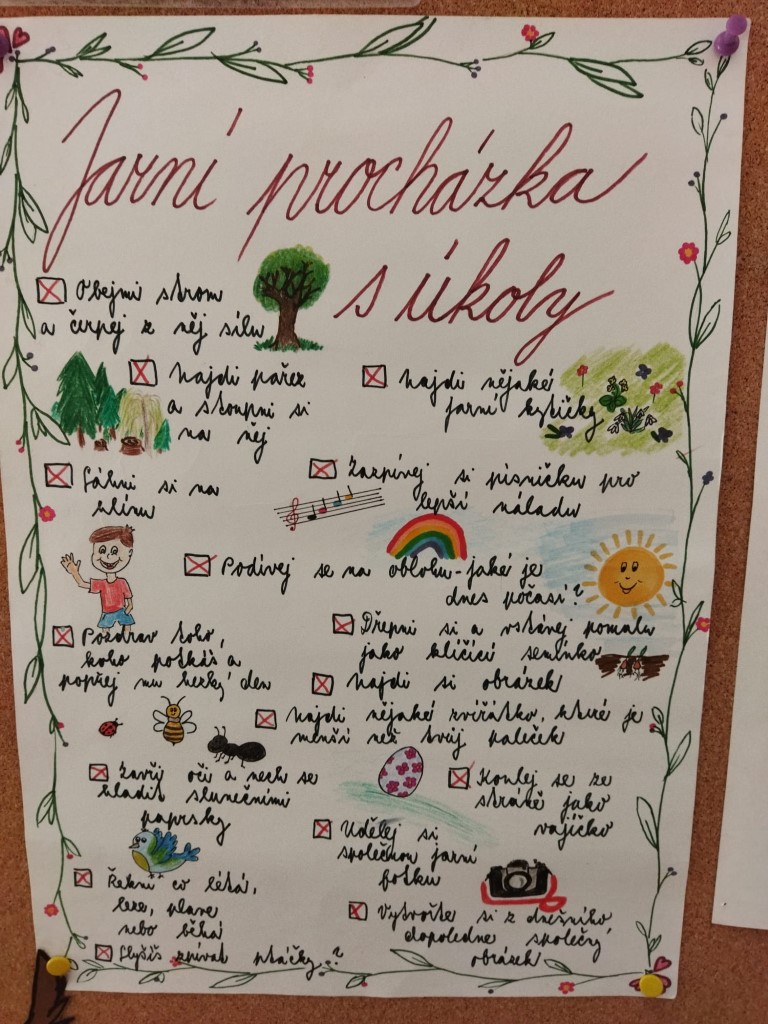 Jarní procházka
s úkoly
Obejmi strom
a čerpej z něj sílu
Najdi pařez
a stoupni si
na něj
Najdi nějaké
jarní kytičky
Sáhni si na
hlínu
Zazpívej si písničku pro
lepší náladu
Podívej se na oblohu - jaké je
dnes počasí?
Pozdrav toho,
koho potkáš a
popřej mu hezký den
Dřepni si a vstávej pomalu
jako klíčící semínko
Najdi si obrázek
Najdi nějaké zvířátko, které je
menší než tvůj paleček
Zavři oči a nech se
hladit slunečními
paprsky
Koulej se ze
stráně jako
vajíčko
Udělej si
společnou jarní
fotku
Řekni co létá,
leze, plave
nebo běhá
Vytvořte si z dnešního
dopoledne společný
obrázek
Slyšíš zpívat ptáčky?